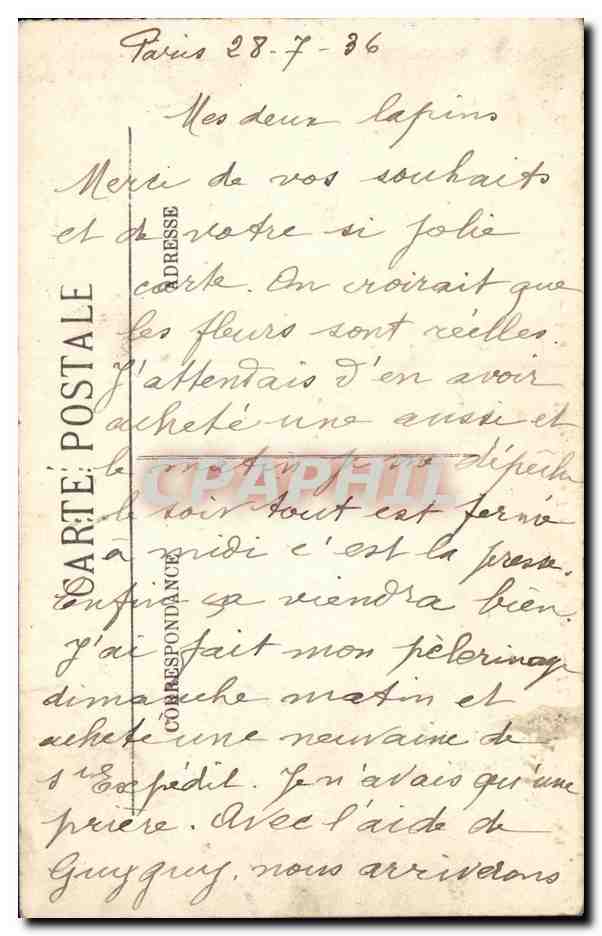 Paris 28-7-36
Mes deux lapins
Merci de vos souhaits
et de votre si jolie
carte. On croirait que
les fleurs sont réelles.
J'attendais d'en avoir
acheté une aussi et
le matin je me dépêche
le soir tout est fermé
à midi c'est la presse.
Enfin ça viendra bien.
J'ai fait mon pèlerinage
dimanche matin et
acheté une neuvaine de
Expédit. Je n'avais qu'une
prière. Avec l'aide de
Guyguy, nous arriverons
CARTE POSTALE
ADRESSE
CORRESPONDANCE
CPAPHIL